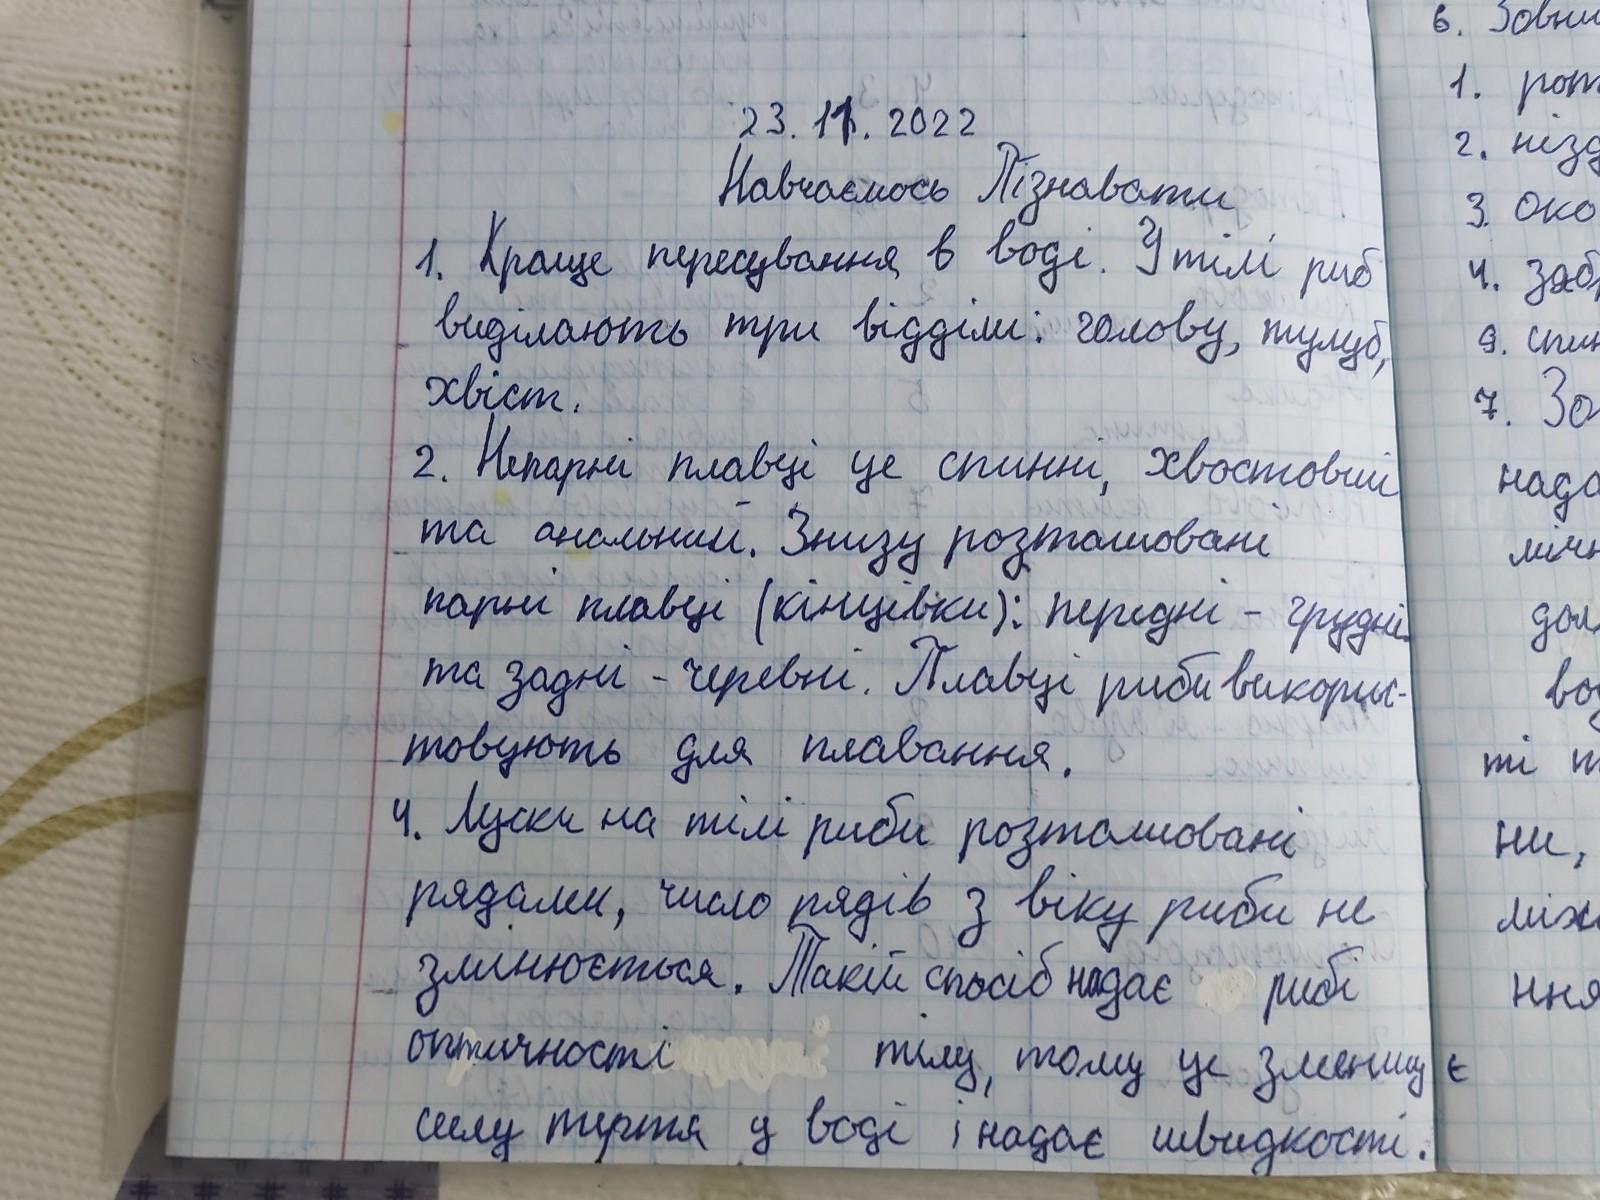 23.11.2022
Навчаємось Пізнавати
1. Краще пересування в воді. У тілі риб
виділають три відділи: голову, тулуб,
хвіст.
2. Непарні плавці це спинні, хвостовий
та анальний. Знизу розташовані
парні плавці (кінцівки): передні - грудні
та задні - черевні. Плавці риби викорис-
товують для плавання.
4. Луски на тілі риби розташовані
рядами, число рядів з віку риби не
змінюється. Такій спосіб надає рибі
оптичності тілу, тому це зменшує
силу тертя у воді і надає швидкості.
6. Зовни
1. рот
2. нізд
3. око
4. забр
9. спин
7. Зо
нада
лічн
дол
вод
ті т
ни,
між
ння